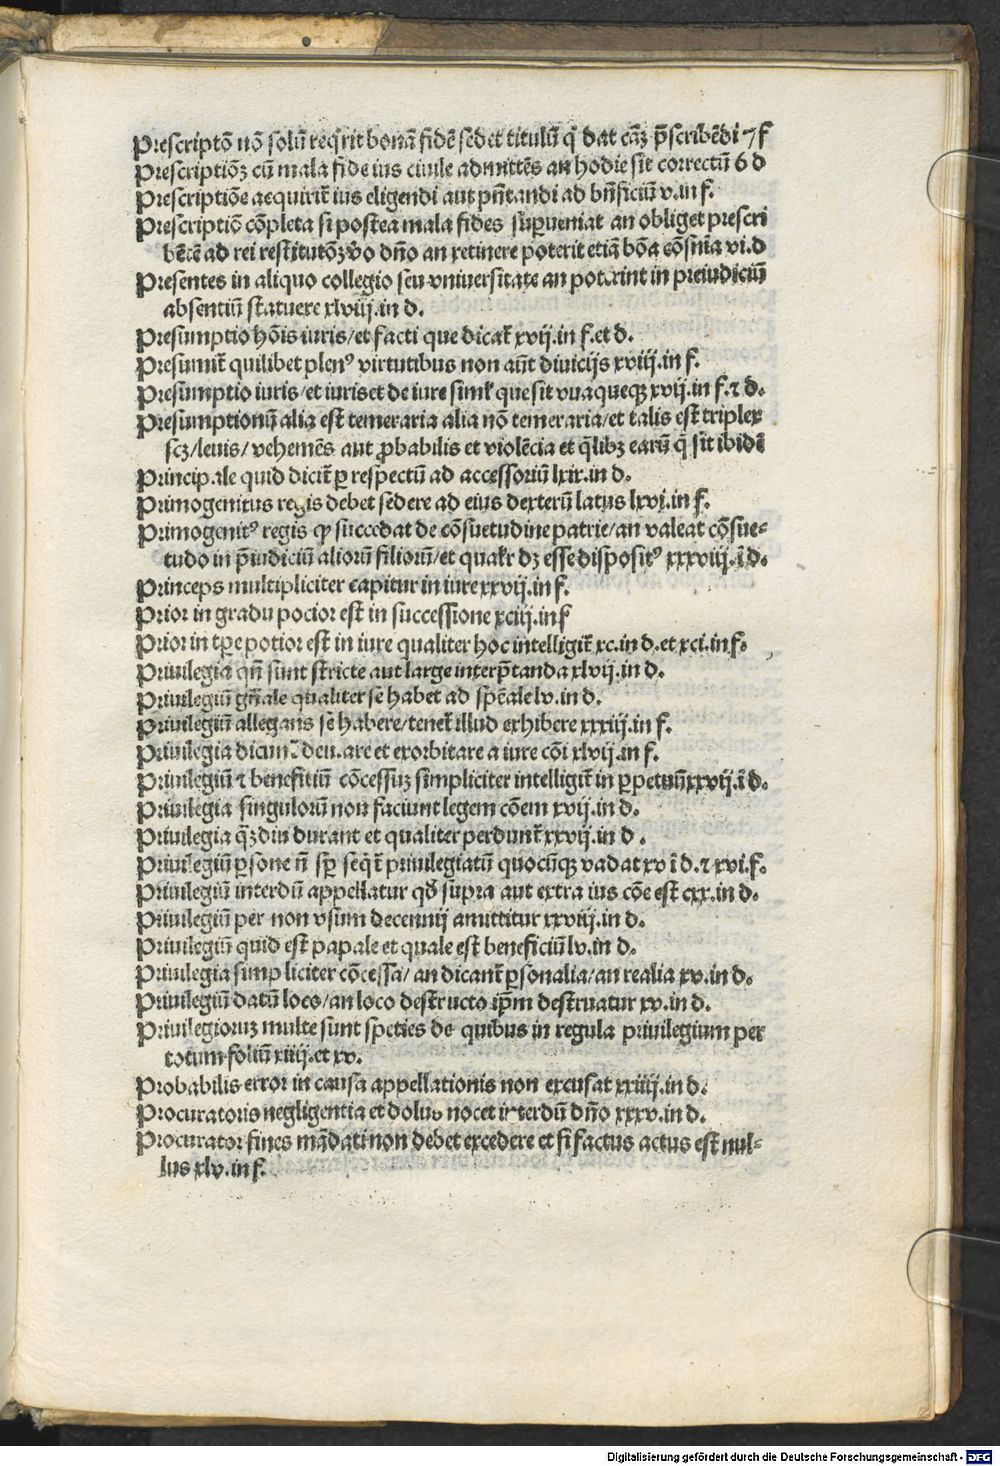 Prescriptō nō solū reqͥrit bonā fidē sed et titulū qͥ dat cāꝫ p̄scribēdi 7 f
Prescriptiōꝫ cū mala fide ius ciuile admittēs an hodie sit correctū 6 d
Prescriptiōe aequirit̄ ius eligendi aut pn̄tandi ad bn̄ficiū v.in f.
Prescriptiō cōpleta si postea mala fides suꝑueniat an obliget prescri
bētē ad rei restitutōꝫ v̓o dn̄o an retinere poterit etiā bōa cōsnīa vi.d
Presentes in aliquo collegio seu vniuersitate an poterint in preiudiciū
absentiū statuere xlviij.in d.
Presumptio hōis iuris/et facti que dicat̄ xvij.in f.et d.
Presumit̄ quilibet plenꝰ virtutibus non aūt diuicijs xviij.in f.
Presumptio iuris/et iuris et de iure simꝉ que sit vnaqueqꝫ xvij.in f.⁊ d.
Presumptionū alia est temeraria alia nō temeraria/et talis est triplex
scꝫ/leuis/vehemēs aut ꝓbabilis et violēcia et qͣlibꝫ earū qͥ sit ibidē
Principale quid dicit̄ ꝑ respectū ad accessoriū lxix.in d.
Primogenitus regis debet sedere ad eius dexterū latus lxvi.in f.
Primogenitꝰ regis ꝙ succedat de cōsuetudine patrie/an valeat cōsue-
tudo in p̄iudiciū aliorū filiorū/et qualr̄ dꝫ esse dispositꝰ xxxviij.ī d.
Princeps multipliciter capitur in iure xxvij.in f.
Prior in gradu pocior est in successione xciij.in f
Prior in tꝑe potior est in iure qualiter hoc intelligit̄ xc.in d.et xci.in f.
Priuilegia qn̄ sunt stricte aut large interp̄tanda xlvij.in d.
Priuilegiū gn̄ale qualiter sē habet ad spēale lv.in d.
Priuilegiū allegans sē habere/tenet̄ illud exhibere xxxiij.in f.
Priuilegia dicun̄t deuiare et exorbitare a iure cōi xlvij.in f.
Priuilegiū ⁊ benefitiū cōcessuꝫ simpliciter intelligit̄ in ꝑpetuū xxvij.ī d.
Priuilegia singulorū non faciunt legem cōem xvij.in d.
Priuilegia qͣꝫdiu durant et qualiter perdunt̄ xxvij.in d.
Priuilegiū ꝑsone n̄ sꝑ seqͥt̄ priuilegiatū quocūqꝫ vadat xv ī d.⁊ xvi.f.
Priuilegiū interdū appellatur qđ supra aut extra ius cōe est cxx.in d.
Priuilegiū per non vsum decennij amittitur xxviij.in d.
Priuilegiū quid est papale et quale est beneficiū lv.in d.
Priuilegia simpliciter cōcessa/an dicant̄ ꝑsonalia/an realia xv.in d.
Priuilegiū datū loco/an loco destructo ip̄m destruatur xv.in d.
Priuilegioruꝫ multe sunt speties de quibus in regula priuilegium per
totum foliū xiiij.et xv.
Probabilis error in causa appellationis non excusat xxiiij.in d.
Procuratoris negligentia et dolus nocet interdū dn̄o xxxv.in d.
Procurator fines mādati non debet excedere et si factus actus est nul-
lus xlv.in f.
Digitalisierung gefördert durch die Deutsche Forschungsgemeinschaft - DFG